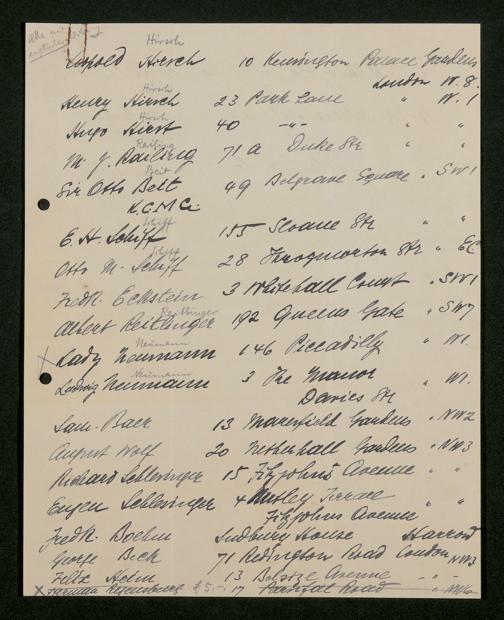 alle mit
Hirsch
Leopold Hirsch 10 Kensington Palace Gardens
London W. 8.
Hirsch
Henry Hirsch 23 Park Lane " W. 1
Hirst
Hugo Hirst 40 -"- " "
Railing
M. J. Railing 71a Duke Str " "
Beit
Sir Otto Beit 49 Belgrave Square " SW1
K.C.M.G.
Schiff
E. H. Schiff 155 Sloane Str " "
Schiff
Otto M. Schiff 28 Throgmorton Str " EC
Fredk. Eckstein 3 Whitehall Court " SW1
Reitlinger
Albert Reitlinger 192 Queens Gate " SW7
Neumann
x Lady Neumann 146 Piccadilly " W1.
Neumann
Ludwig Neumann 3 The Manor " W1.
Davies Str
Sam. Baer 13 Maresfield Gardens " NW3
August Wolf 20 Netherhall Gardens " NW3
Richard Schlesinger 15 Fitzjohns Avenue " "
Eugen Schlesinger 4 Terrace
Fitzjohns Avenue " "
Fredk. Boehm Sudbury House Harrow
George Beck 71 Redington Road London NW3
Felix Helm 13 Belsize Avenue " "
x Herman Regensburg £5.- 17 Parsifal Road " NW6